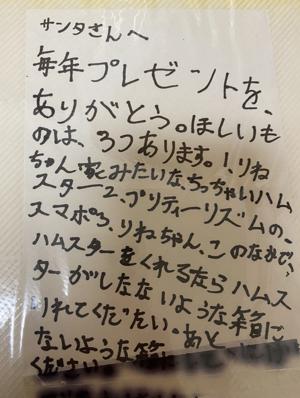 サンタさんへ
毎年プレゼントを、
ありがとう。ほしいも
のは、3つあります。1.りね
ちゃん家みたいな、ちっちゃいハム
スター2、プリティーリズムの、
スマホ3、りねちゃん、このなかで、
ハムスターをくれるならハムス
ターがしなないような箱に
いれてください。あと
ないような箱
ください